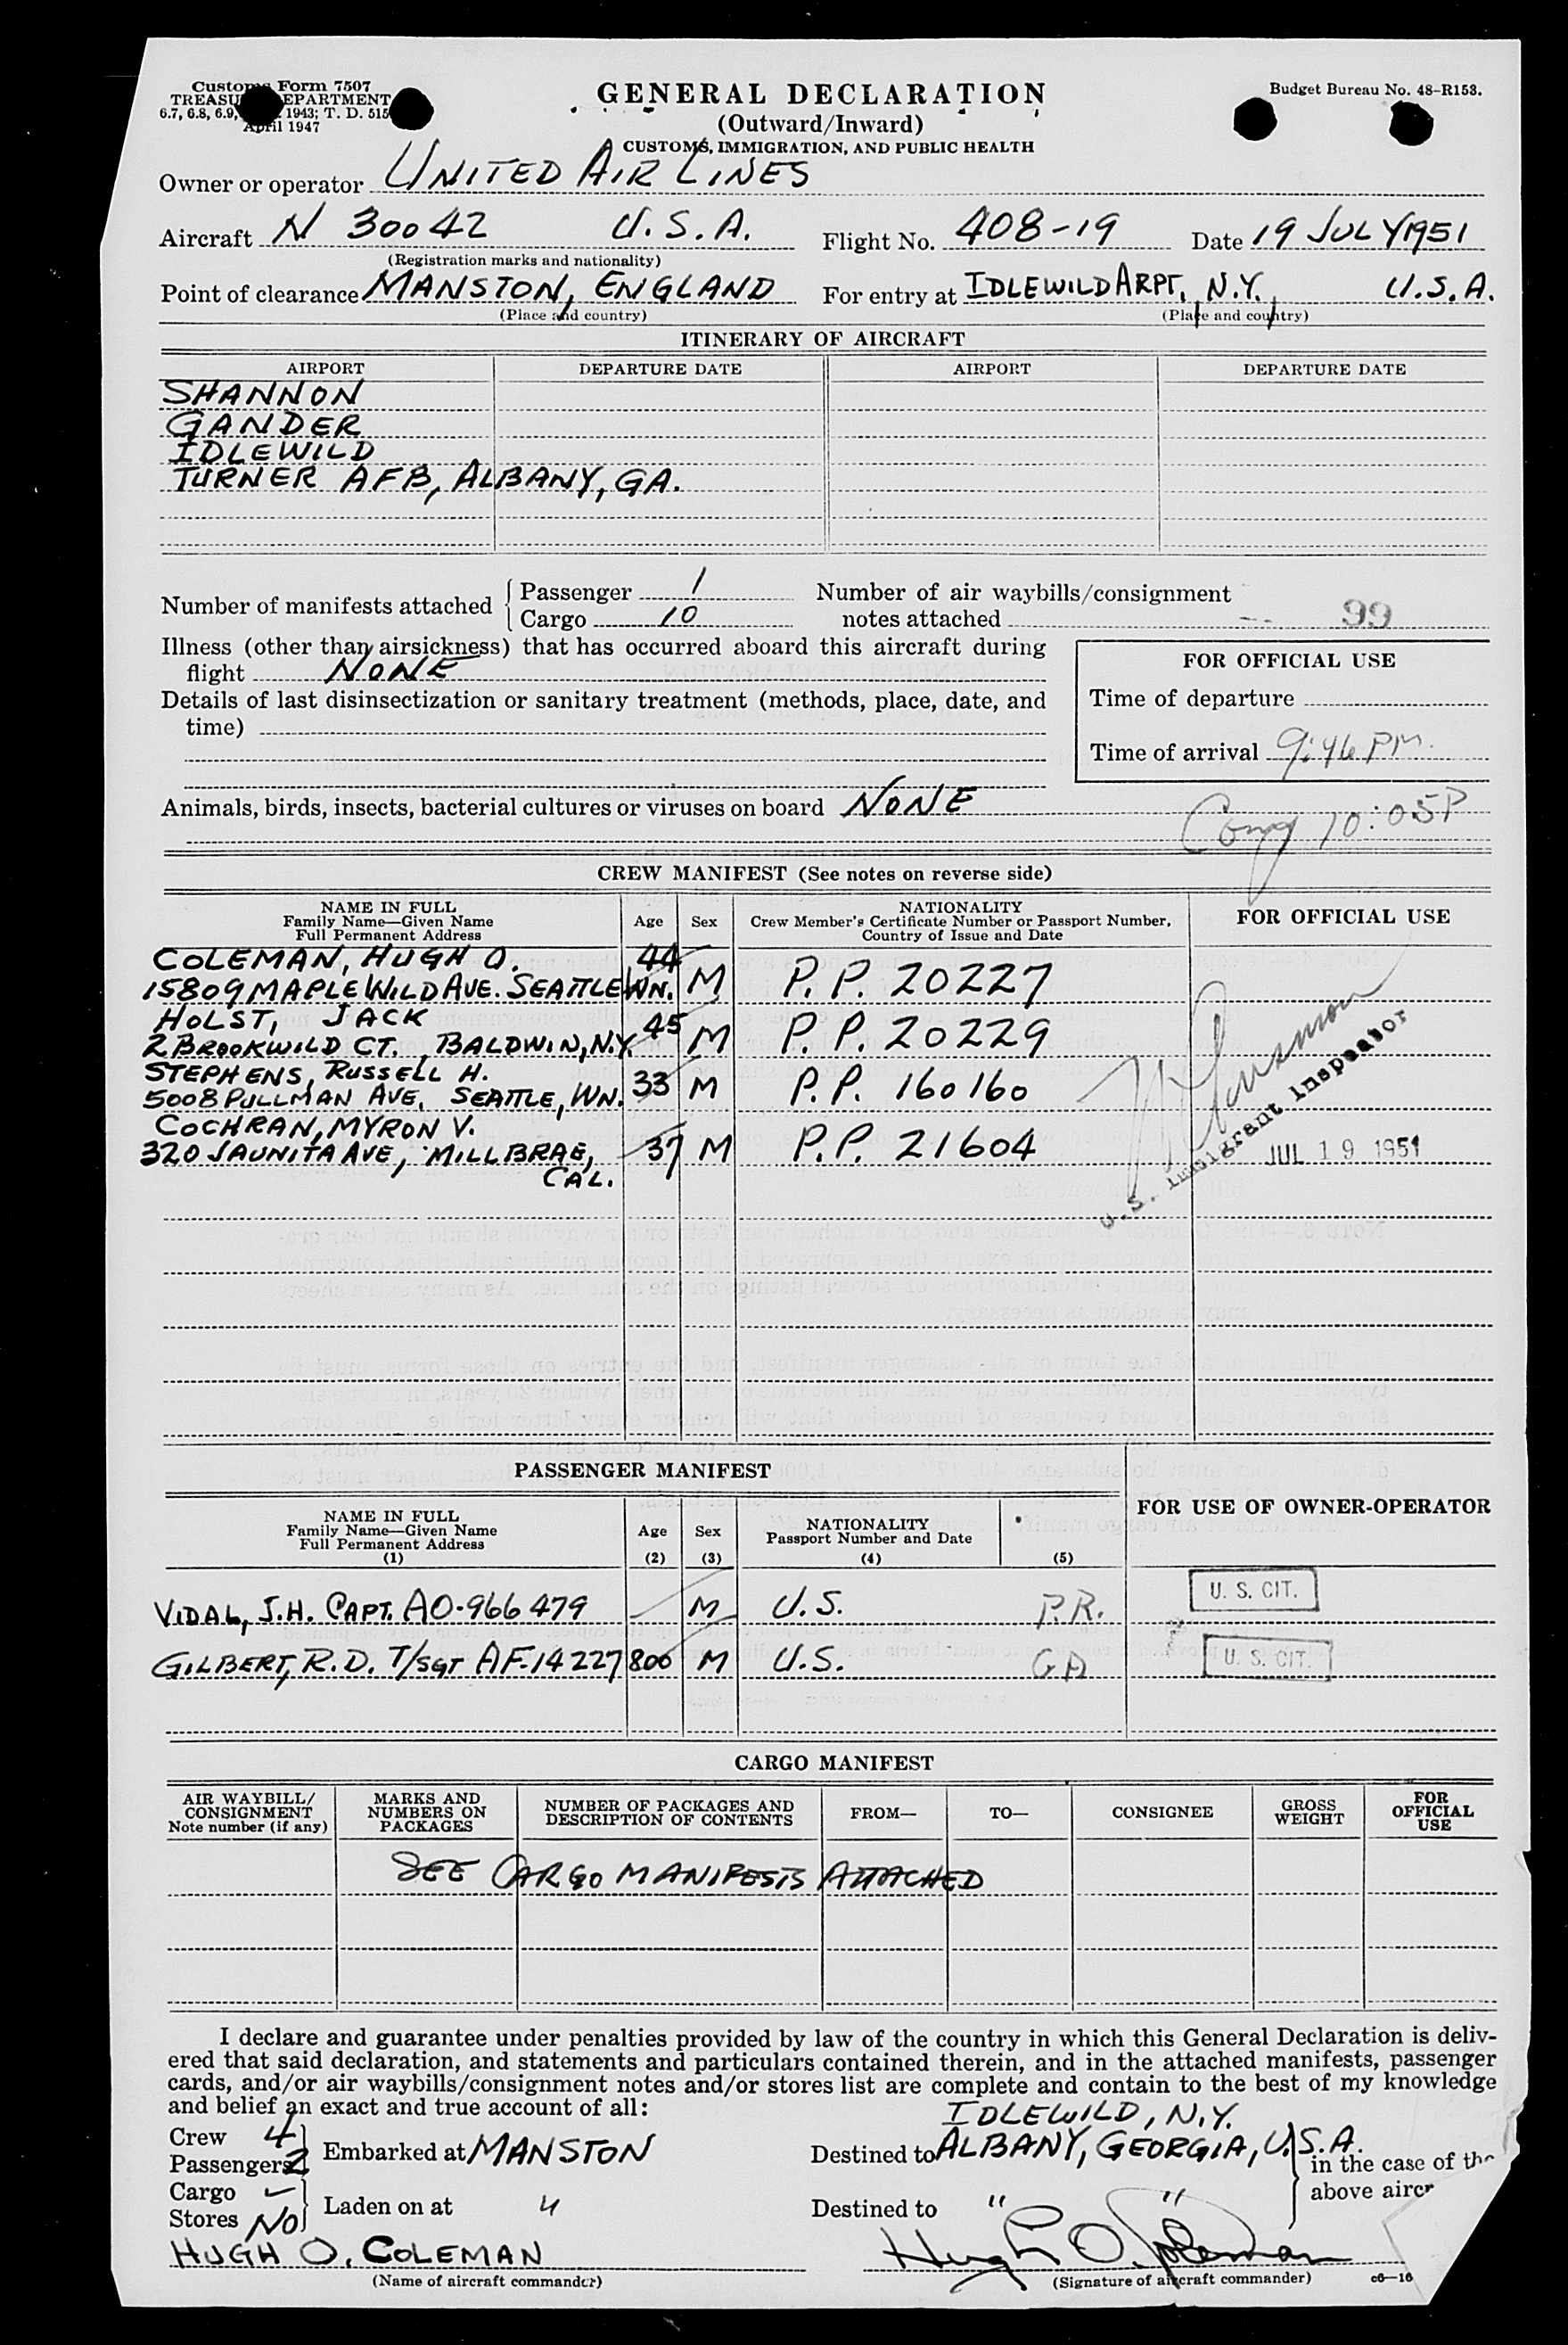 Customs Form 7507
TREASURY DEPARTMENT
6.7, 6.8, 6.9, 1943; T. D. 515
April 1947
GENERAL DECLARATION
(Outward/Inward)
CUSTOMS, IMMIGRATION, AND PUBLIC HEALTH
Budget Bureau No. 48-R153.
Owner or operator UNITED AIR LINES
Aircraft N 30042 U.S.A. Flight No. 408-19 Date 19 JULY 1951
(Registration marks and nationality)
Point of clearance MANSTON, ENGLAND For entry at IDLEWILD ARPT, N.Y., U.S.A.
(Place and country) (Place and country)
ITINERARY OF AIRCRAFT
AIRPORT DEPARTURE DATE AIRPORT DEPARTURE DATE
SHANNON
GANDER
IDLEWILD
TURNER AFB, ALBANY, GA.
Number of manifests attached { Passenger 1 Number of air waybills/consignment
Cargo 10 notes attached -- 99
Illness (other than airsickness) that has occurred aboard this aircraft during
flight NONE
Details of last disinsectization or sanitary treatment (methods, place, date, and
time)
FOR OFFICIAL USE
Time of departure
Time of arrival 9:46 PM.
Animals, birds, insects, bacterial cultures or viruses on board NONE
10:05P
CREW MANIFEST (See notes on reverse side)
NAME IN FULL
Family Name—Given Name
Full Permanent Address
Age Sex
NATIONALITY
Crew Member's Certificate Number or Passport Number,
Country of Issue and Date
FOR OFFICIAL USE
COLEMAN, HUGH O. 44
15809 MAPLE WILD AVE. SEATTLE WN. M P.P. 20227
HOLST, JACK 45
2 BROOKWILD CT., BALDWIN, N.Y. M P.P. 20229
STEPHENS, RUSSELL H.
5008 PULLMAN AVE, SEATTLE, WN. 33 M P.P. 160160
COCHRAN, MYRON V.
320 JAUNITA AVE, MILLBRAE, 37 M P.P. 21604
CAL.
U.S. Immigrant Inspector
JUL 19 1951
PASSENGER MANIFEST
FOR USE OF OWNER-OPERATOR
NAME IN FULL
Family Name—Given Name
Full Permanent Address
(1)
Age
(2)
Sex
(3)
NATIONALITY
Passport Number and Date
(4)
(5)
VIDAL, J.H. CAPT. AO-966479 M U.S. P.R. U. S. CIT.
GILBERT, R.D. T/SGT AF-14227800 M U.S. GA U. S. CIT.
CARGO MANIFEST
AIR WAYBILL/
CONSIGNMENT
Note number (if any)
MARKS AND
NUMBERS ON
PACKAGES
NUMBER OF PACKAGES AND
DESCRIPTION OF CONTENTS
FROM—
TO—
CONSIGNEE
GROSS
WEIGHT
FOR
OFFICIAL
USE
SEE CARGO MANIFESTS ATTACHED
I declare and guarantee under penalties provided by law of the country in which this General Declaration is deliv-
ered that said declaration, and statements and particulars contained therein, and in the attached manifests, passenger
cards, and/or air waybills/consignment notes and/or stores list are complete and contain to the best of my knowledge
and belief an exact and true account of all:
IDLEWILD, N.Y.
Crew 4
Passengers 2 Embarked at MANSTON Destined to ALBANY, GEORGIA, U.S.A. in the case of the
Cargo
Stores NO Laden on at " Destined to " " above aircr
HUGH O. COLEMAN Hugh O. Coleman
(Name of aircraft commander) (Signature of aircraft commander) c6—16